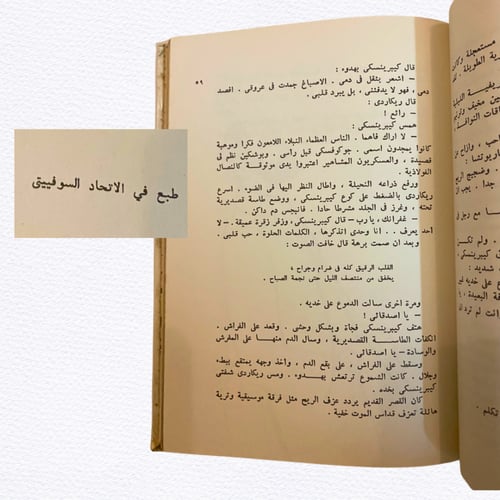 طبع في الاتحاد السوفييتى
٥٩
قال كيبرينسكى بهدوء :
– اشعر بثقل فى دمى . الاصباغ جمدت فى عروقى . اقصد
دمى ، فهو لا يدفئنى ، بل يبرد قلبى .
قال ريكاردى :
– رائع !
همس كيبرينسكى :
– لا اراك فاهما . الناس العظماء النبلاء اللامعون فكرا وموهبة
كانوا يمجدون اسمى . جوكوفسكى قبل رأسى . وبوشكين نظم فى
قصيدة ، والعسكريون المشاهير اعتبروا يدى موثوقة كالنصال
الفولاذية .
ورفع ذراعه النحيلة ، واطال النظر اليها فى الضوء . اسرع
ريكاردى بالضغط على كوع كيبرينسكى ، ووضع طاسة قصديرية
تحته ، وغرز فى الجلد مشرطا حادا . فانبجس دم داكن .
– غفرانك ، يا رب – قال كيبرينسكى ، وزفر زفرة عميقة . – لا
احد يعرف . . انا وحدى اتذكرها ، الكلمات الحلوة ، حب قلبى .
وبعد ان صمت برهة قال خافت الصوت :
القلب الرقيق كله فى ضرام وجراح ،
يخفق من منتصف الليل حتى نجمة الصباح .
ومرة اخرى سالت الدموع على خديه .
– يا اصدقائى !
هتف كيبرينسكى فجأة وبشكل وحشى . وقعد على الفراش .
انكفأت الطاسة القصديرية ، وسال الدم منها على المفرش
والوسادة – يا اصدقائى !
وسقط على الفراش ، على بقع الدم ، واخذ وجهه يمتقع ببطء
وجلال . كانت الشموع ترتعش بهدوء . ومس ريكاردى شفتى
كيبرينسكى بخده .
كان القصر القديم يردد عزف الريح مثل فرقة موسيقية وترية
هائلة تعزف قداس الموت خفية .
مستعجلة وكانت
رية الطويلة .